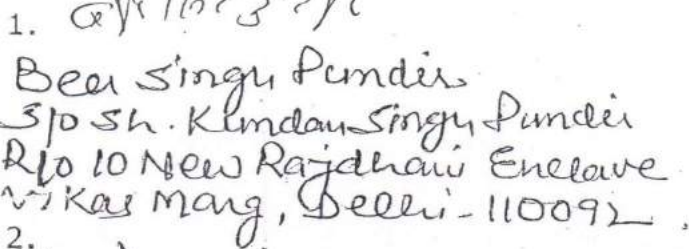 1.
Beer Singh Pundir
S/o Sh. Kundan Singh Pundir
R/o 10 New Rajdhani Enclave
Vikas Marg, Delhi - 110092.
2.